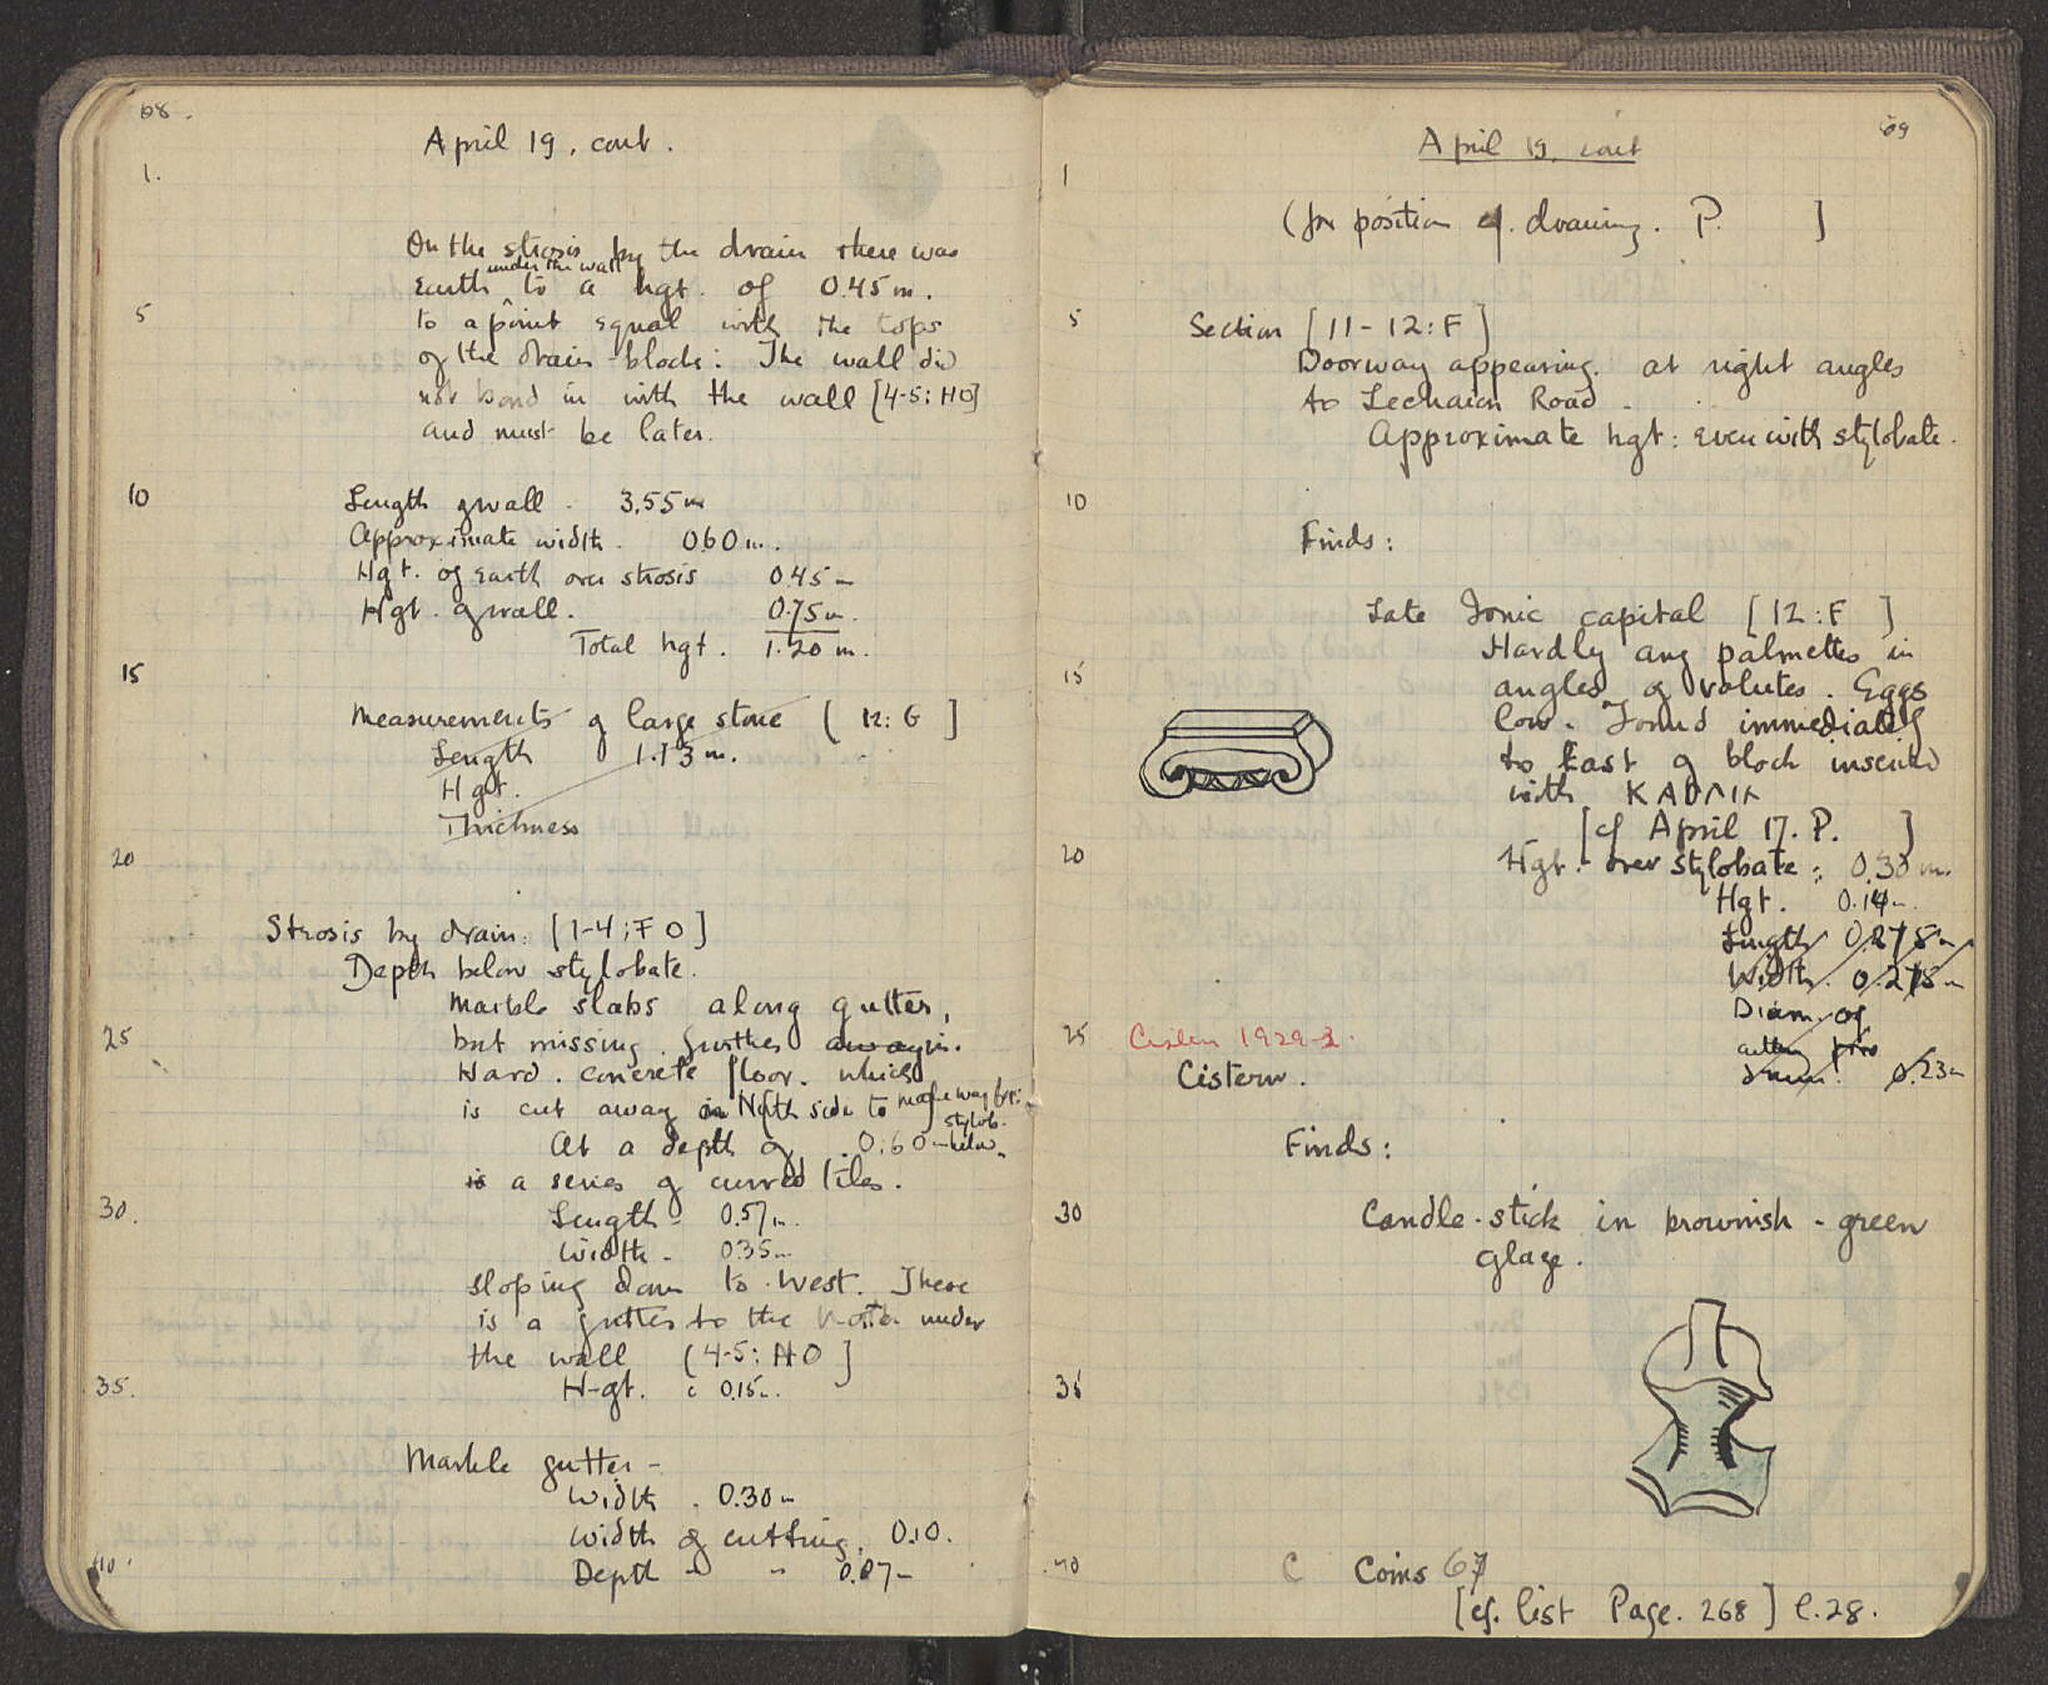 68.
April 19, cont.
1.
On the strosis by the drain there was
under the wall
Earth to a hgt. of 0.45 m.
5
to a point equal with the tops
of the drain-blocks. The wall did
not bond in with the wall [4-5: HO]
and must be later.
10
Length of wall - 3.55 m
Approximate width. 0.60 m.
Hgt. of Earth over strosis 0.45 m
Hgt. of wall. 0.75 m.
Total hgt. 1.20 m.
15
Measurements of large stone [12: G]
Length 1.13 m.
Hgt.
Thickness
20
Strosis by drain: [1-4; F O]
Depth below stylobate.
Marble slabs along gutter,
25
but missing further
Hard concrete floor. which
is cut away in North side to make way for
stylob.
At a depth of 0.60 m below
is a series of curved tiles.
30.
Length - 0.57 m.
Width - 0.35 m
sloping down to West. There
is a gutter to the North under
the wall [4-5: HO]
35.
Hgt. c 0.15 m.
Marble gutter -
Width . 0.30 m
Width of cutting. 0.10.
40.
Depth " " 0.07 m
69
April 19, cont
1
(for position cf. drawing. P. ]
5
Section [11-12: F]
Doorway appearing. at right angles
to Lechaion Road.
Approximate hgt: even with stylobate.
10
Finds:
Late Ionic capital [12: F]
Hardly any palmettes in
15
angles of volutes. Eggs
low. Found immediately
to East of block inscribed
with
[cf April 17. P. ]
20
Hgt. over stylobate: 0.30 m.
Hgt. 0.14 m.
Length 0.275 m
Width. 0.275 m
Diam. of
25
Cistern 1929-2.
0.23 m
Cistern.
Finds:
30
Candle-stick in brownish-green
glaze.
35
40
C Coins 67
[cf. list Page. 268] l. 28.